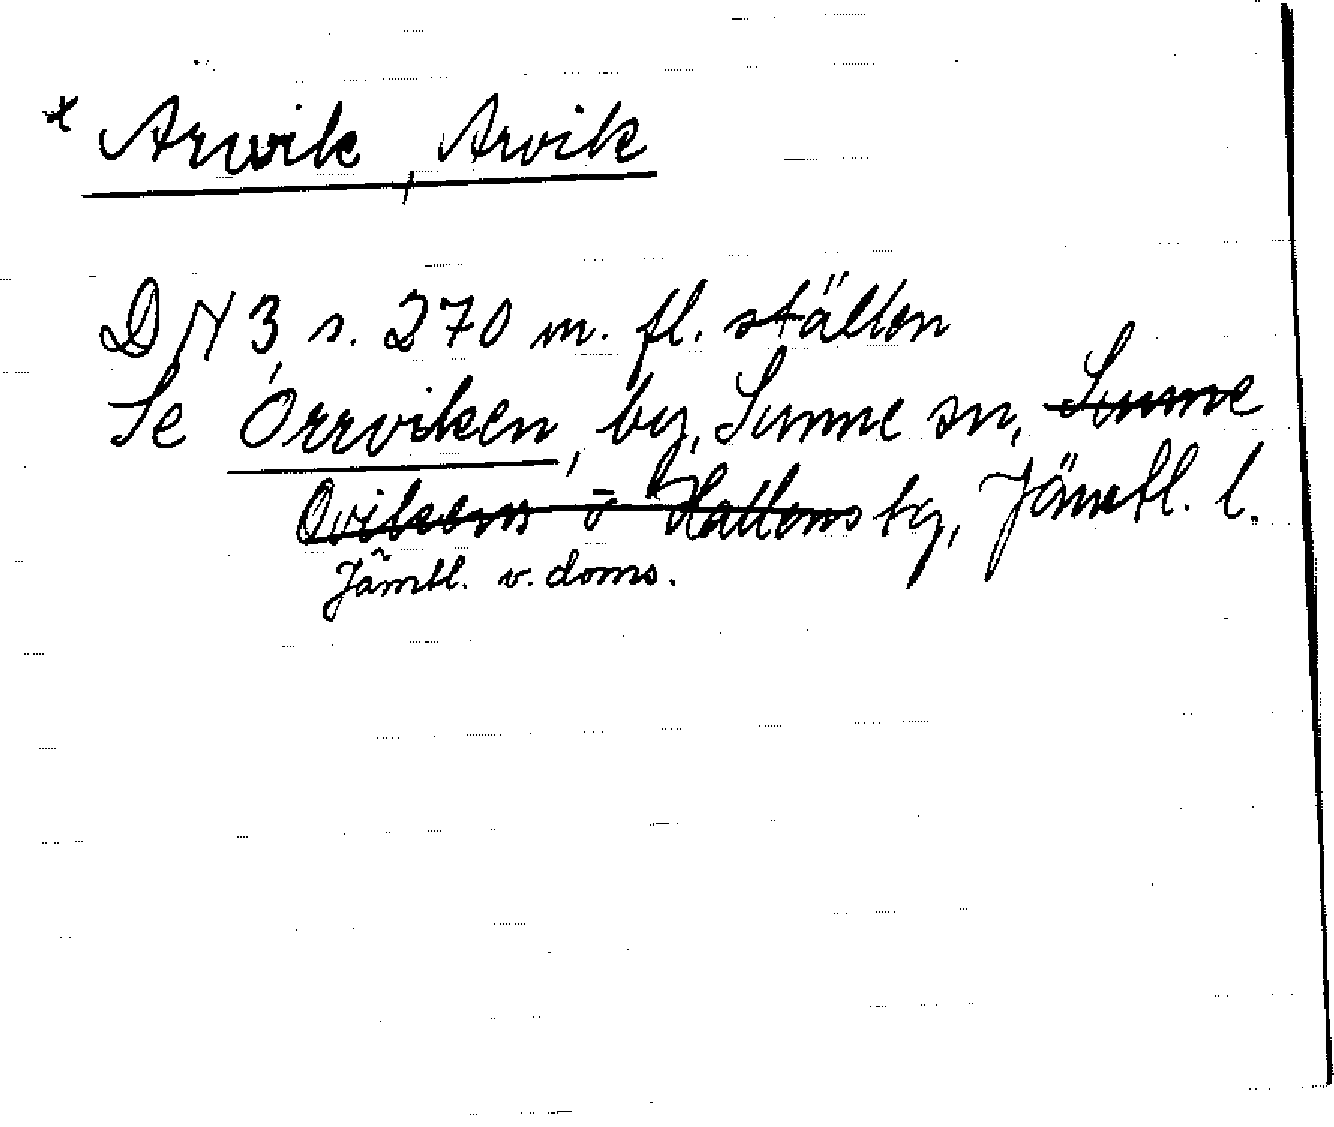 * Arwik, Arvik
DN 3, s. 270 m. fl. ställen
Se Orrviken, by, Sunne sn, Sunne
Ovikens o Hallens tg, Jämtl. l.
Jämtl. v. doms.